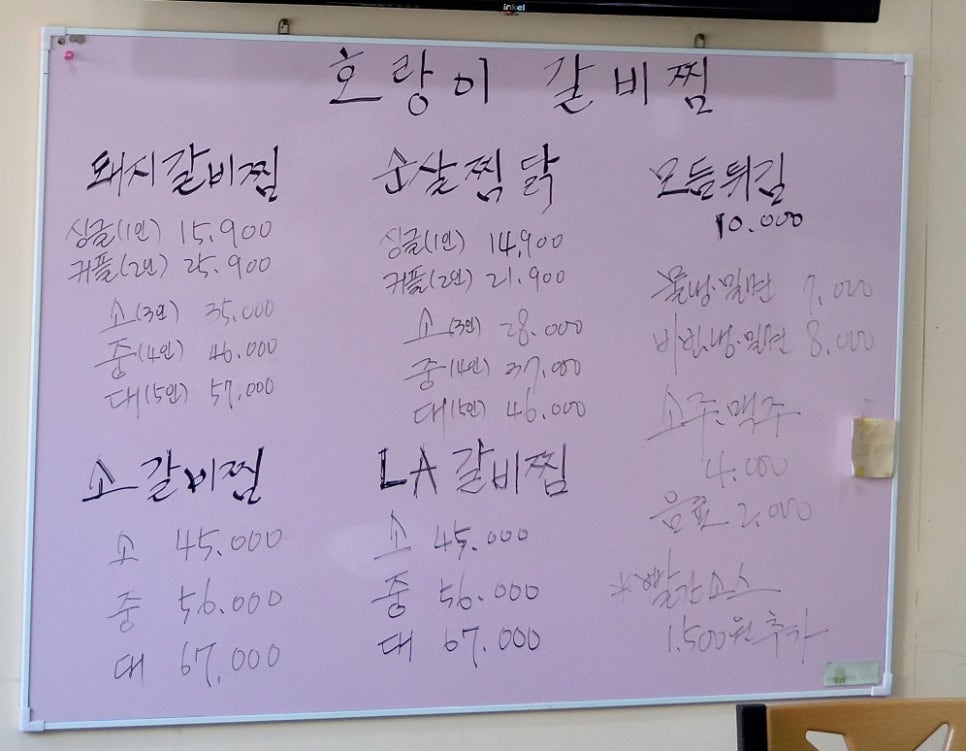 inkel
호랑이 갈비찜
돼지갈비찜
싱글(1인) 15,900
커플(2인) 25.900
소(3인) 35.000
중(4인) 46.000
대(5인) 57,000
순살찜닭
싱글(1인) 14,900
커플(2인) 21.900
소(3인) 28.000
중(4인) 37,000
대(5인) 46.000
모듬튀김
10.000
물냉·밀면 7,000
비빔냉·밀면 8.000
소주.맥주
4.000
음료 2.000
*빨간소스
1.500원 추가
소갈비찜
소 45.000
중 56.000
대 67,000
LA갈비찜
소 45.000
중 56.000
대 67.000